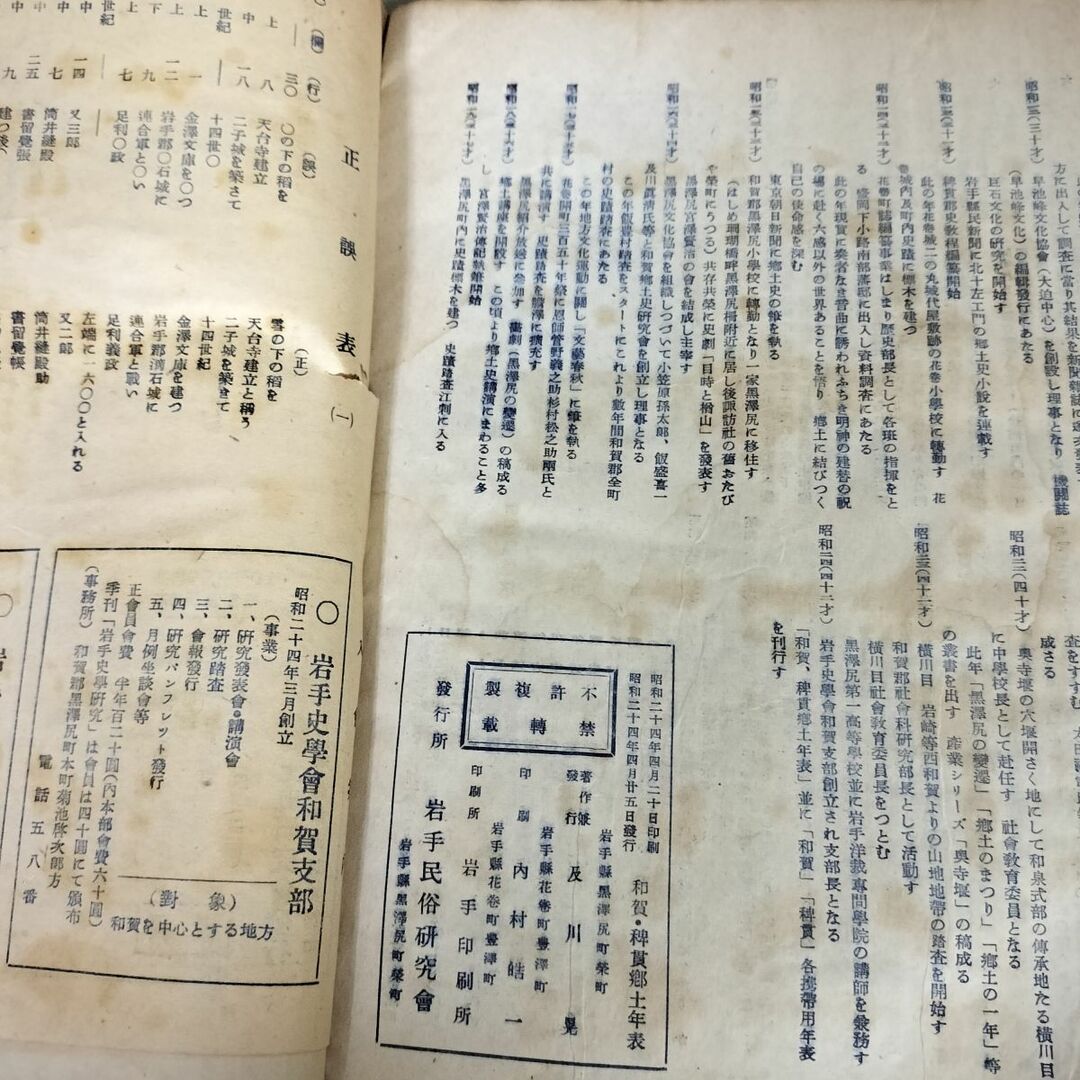 方に出入して調査に當り其結果を
昭和一三(三十才)
早池峰文化協會(大迫中心)を創設し理事となり 機關誌
(早池峰文化)の編輯發行にあたる
巨石文化の研究を開始す
岩手縣民新聞に北十左エ門の郷土史小說を連載す
稗貫郡史教程編纂開始
此の年花巻城二の丸城代屋敷跡の花巻小學校に轉勤す 花
巻城内及町内史蹟に標木を建つ
花巻町誌編纂事業はじまり歴史部長として各班の指揮をと
る 盛岡下小路南部藩邸に出入し資料調査にあたる
此の年現實に奏者なき笛曲に誘われふちき明神の建替の祝
の場に赴く六感以外の世界あることを悟り 郷土に結びつく
自己の使命感を深む
東京朝日新聞に郷土史の筆を執る
和賀郡黑澤尻小學校に轉勤となり一家黑澤尻に移住す
(はじめ珊瑚橋畔黑澤尻柵附近に居し後諏訪社の舊おたび
や榮町にうつる)共存共榮に史劇「目時と楢山」を發表す
黑澤尻宮澤賢治の會を結成し主宰す
黑澤尻文化協會を組織しつづいて小笠原孫太郎、飯盛喜一
及川眞清氏等と和賀郷土史研究會を創立し理事となる
この年飯豊村踏査をスタートにこれより數年間和賀郡全町
村の史蹟踏査にあたる
この年地方文化運動に關し「文藝春秋」に筆を執る
花巻開町三百五十年祭に恩師菅野義之助杉村松之助兩氏と
共に講演す 史蹟踏査を膽澤に擴充す
黑澤尻紹介放送に參加す 衝劇(黑澤尻の變遷)の稿成る
郷土講座を開設す この頃より郷土史講演にまわること多
し 宮澤賢治傳記執筆開始
黑澤尻町内に史蹟標木を建つ 史蹟踏査江刺に入る
成さる
昭和二二(四十才)
奥寺堰の穴堰開さく地にして和泉式部の傳承地たる横川目
に中學校長として赴任す 社會教育委員となる
此年「黑澤尻の變遷」「郷土のまつり」「郷土の一年」等
の叢書を出す 產業シリーズ「奥寺堰」の稿成る
横川目 岩崎等西和賀よりの山地地帶の踏査を開始す
和賀郡社會科研究部長として活動す
横川目社會教育委員長をつとむ
黑澤尻第一高等學校並に岩手洋裁專門學院の講師を兼務す
昭和二四(四十二才)
岩手史學會和賀支部創立され支部長となる
「和賀、稗貫郷土年表」並に「和賀」「稗貫」各携帶用年表
を刊行す
和賀・稗貫郷土年表
昭和二十四年四月二十日印刷
昭和二十四年四月廿五日發行
不許複製
禁轉載
岩手縣黑澤尻町榮町
著作兼
發行 及川晃
岩手縣花巻町豐澤町
印刷 内村皓一
岩手縣花巻町豐澤町
印刷所 岩手印刷所
發行所 岩手民俗研究會
岩手縣黑澤尻町榮町
正誤表(一)
(欄) (行) (誤) (正)
上 三〇 〇の下の稻を 雪の下の稻を
中 八 天台寺建立 天台寺建立と稱ろ
世紀 一八 二子城を築さて 二子城を築きて
十四世〇 十四世紀
上 一 金澤文庫を〇つ 金澤文庫を建つ
上 一二 岩手郡〇石城に 岩手郡滴石城に
下 九 連合軍と〇い 連合軍と戰い
上 七 足利〇政 足利義政
世紀 左端に一六〇〇と入れる
中 一四 又三郎 又二郎
中 七 筒井縫殿 筒井縫殿助
中 二五 書留覺張 書留覺帳
〇 岩手史學會和賀支部
昭和二十四年三月創立
(事業)
一、研究發表會・講演會
二、研究踏査
三、會報發行
四、研究パンフレツト發行
五、月例坐談會等
(對象)
和賀を中心とする地方
正會員會費 半年百二十圓(内本部會費六十圓)
季刊「岩手史學研究」は會員は四十圓にて頒布
(事務所) 和賀郡黑澤尻町本町菊池啓次郎方
電話五八番